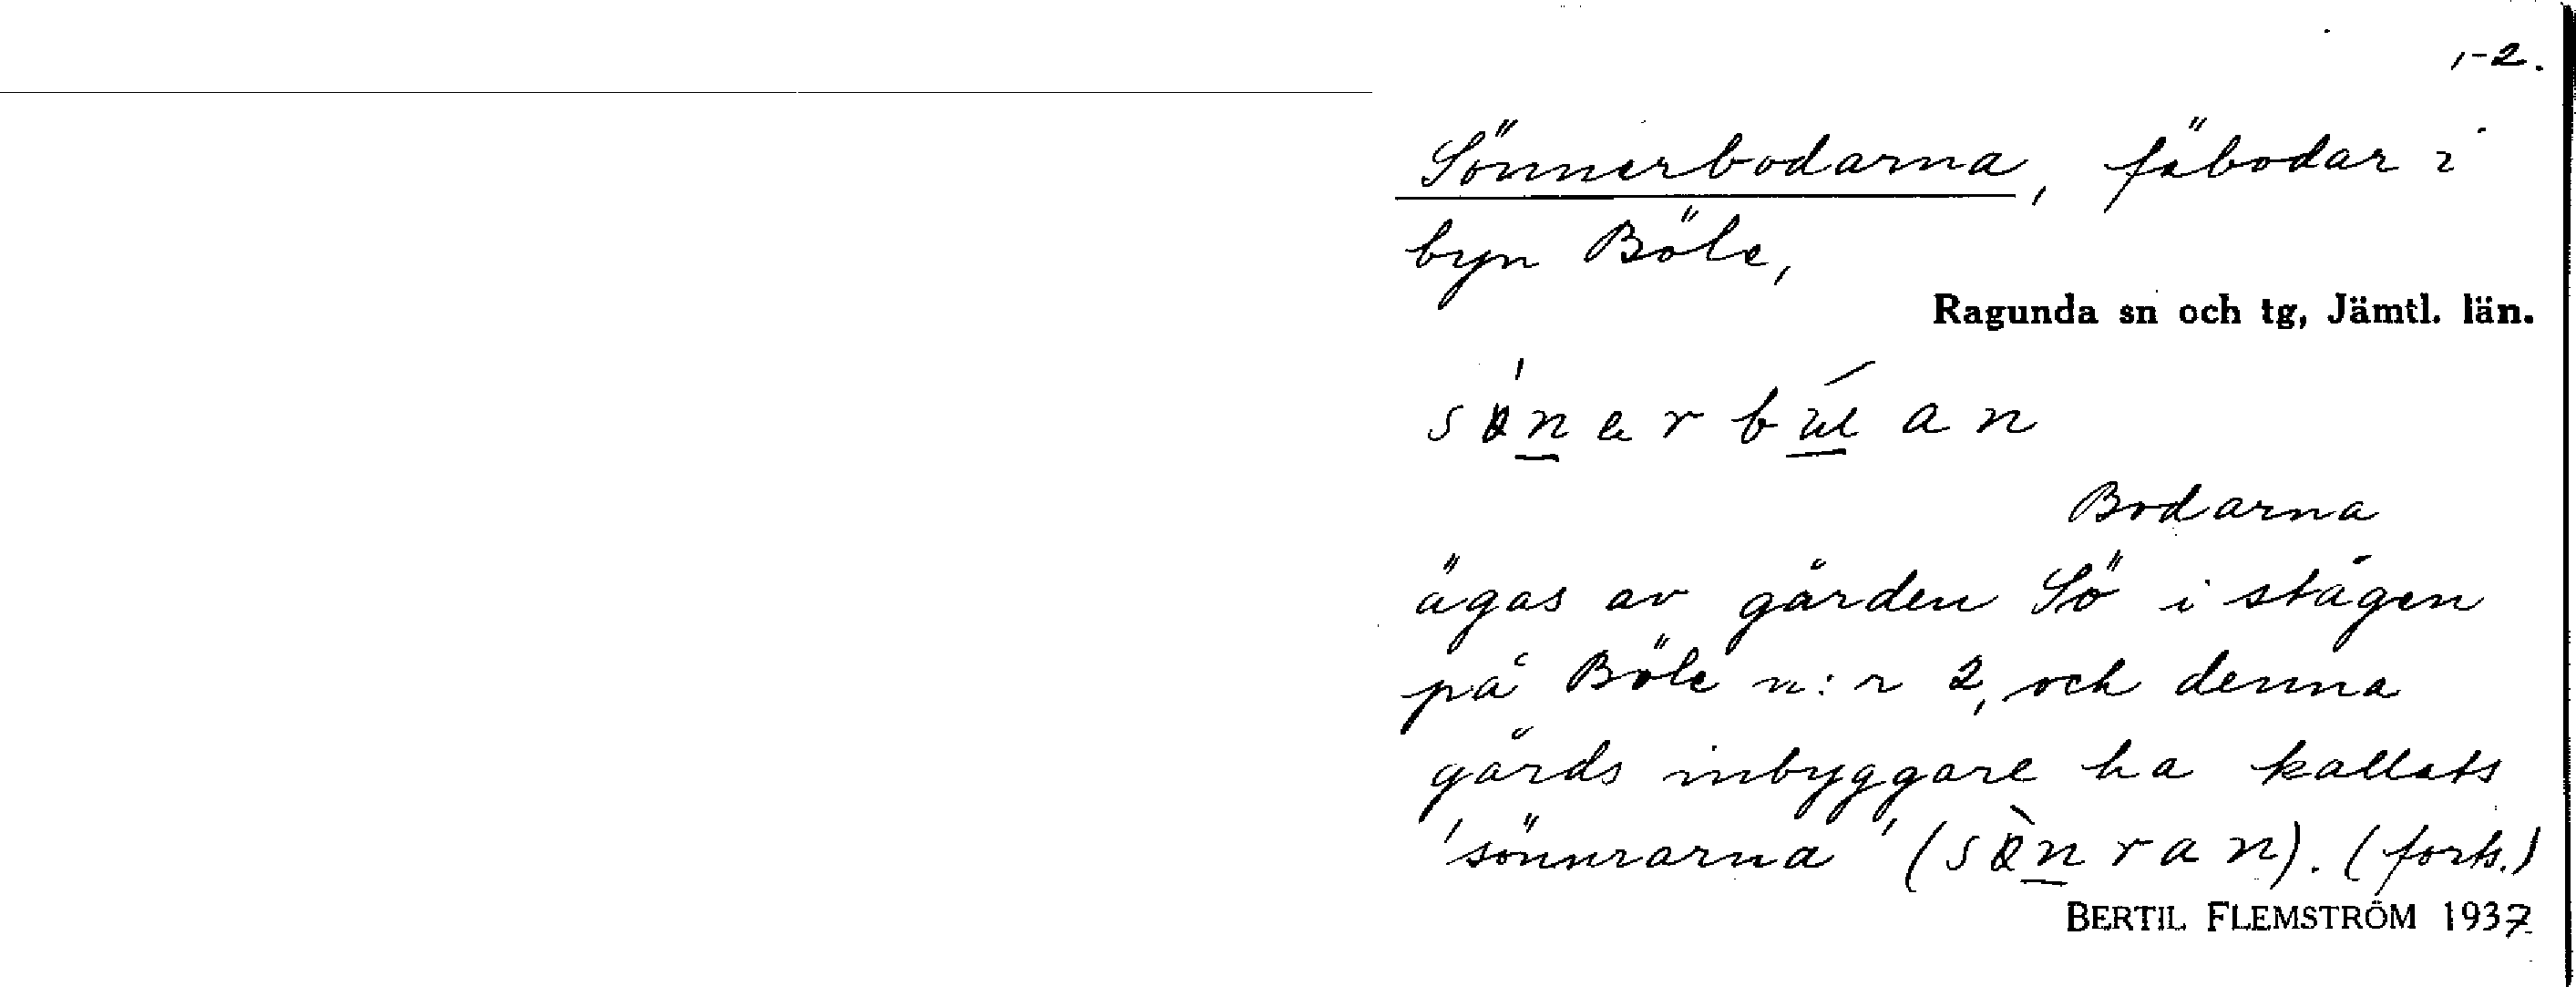 1-2.
Sönnerbodarna, fäbodar i
byn Böle,
Ragunda sn och tg, Jämtl. län.
Bodarna
ägas av gården Sö i stägen
på Böle n:r 2, och denna
gårds inbyggare ha kallats
'sönnrarna' (forts.)
BERTIL FLEMSTRÖM 1937